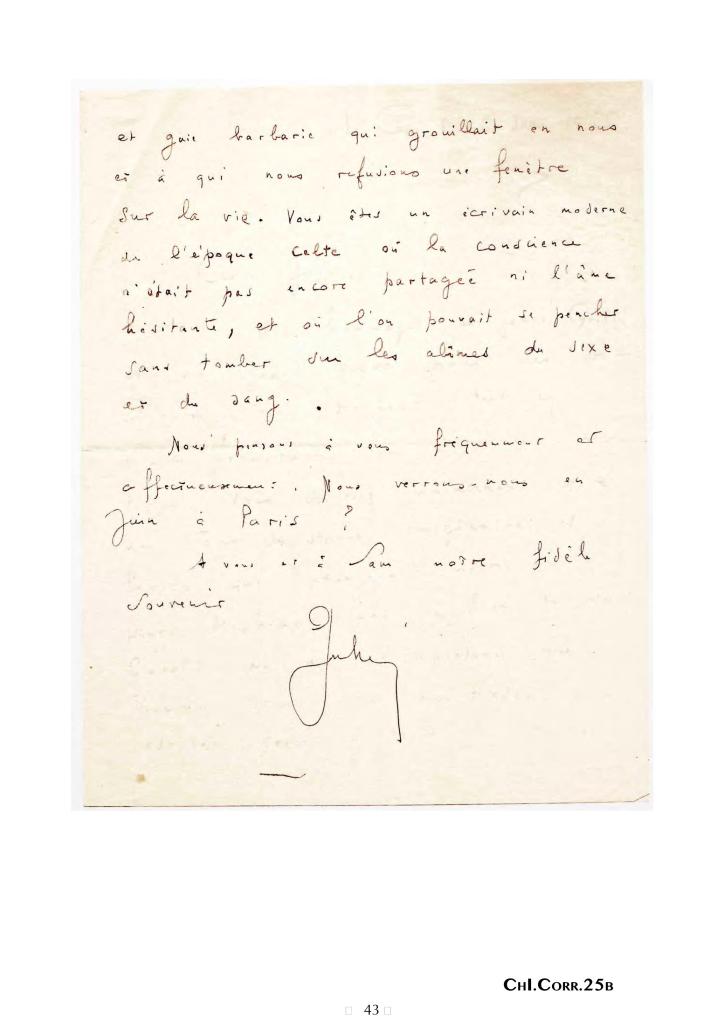 et gaie barbarie qui grouillait en nous
et à qui nous refusions une fenêtre
sur la vie. Vous êtes un écrivain moderne
de l'époque celte où la conscience
n'était pas encore partagée ni l'âme
hésitante, et où l'on pouvait se pencher
sans tomber sur les abîmes du sexe
et du sang.
Nous pensons à vous fréquemment et
affectueusement. Nous verrons-nous en
Juin à Paris ?
A vous et à Sam notre fidèle
souvenir
CHI.CORR.25B
43